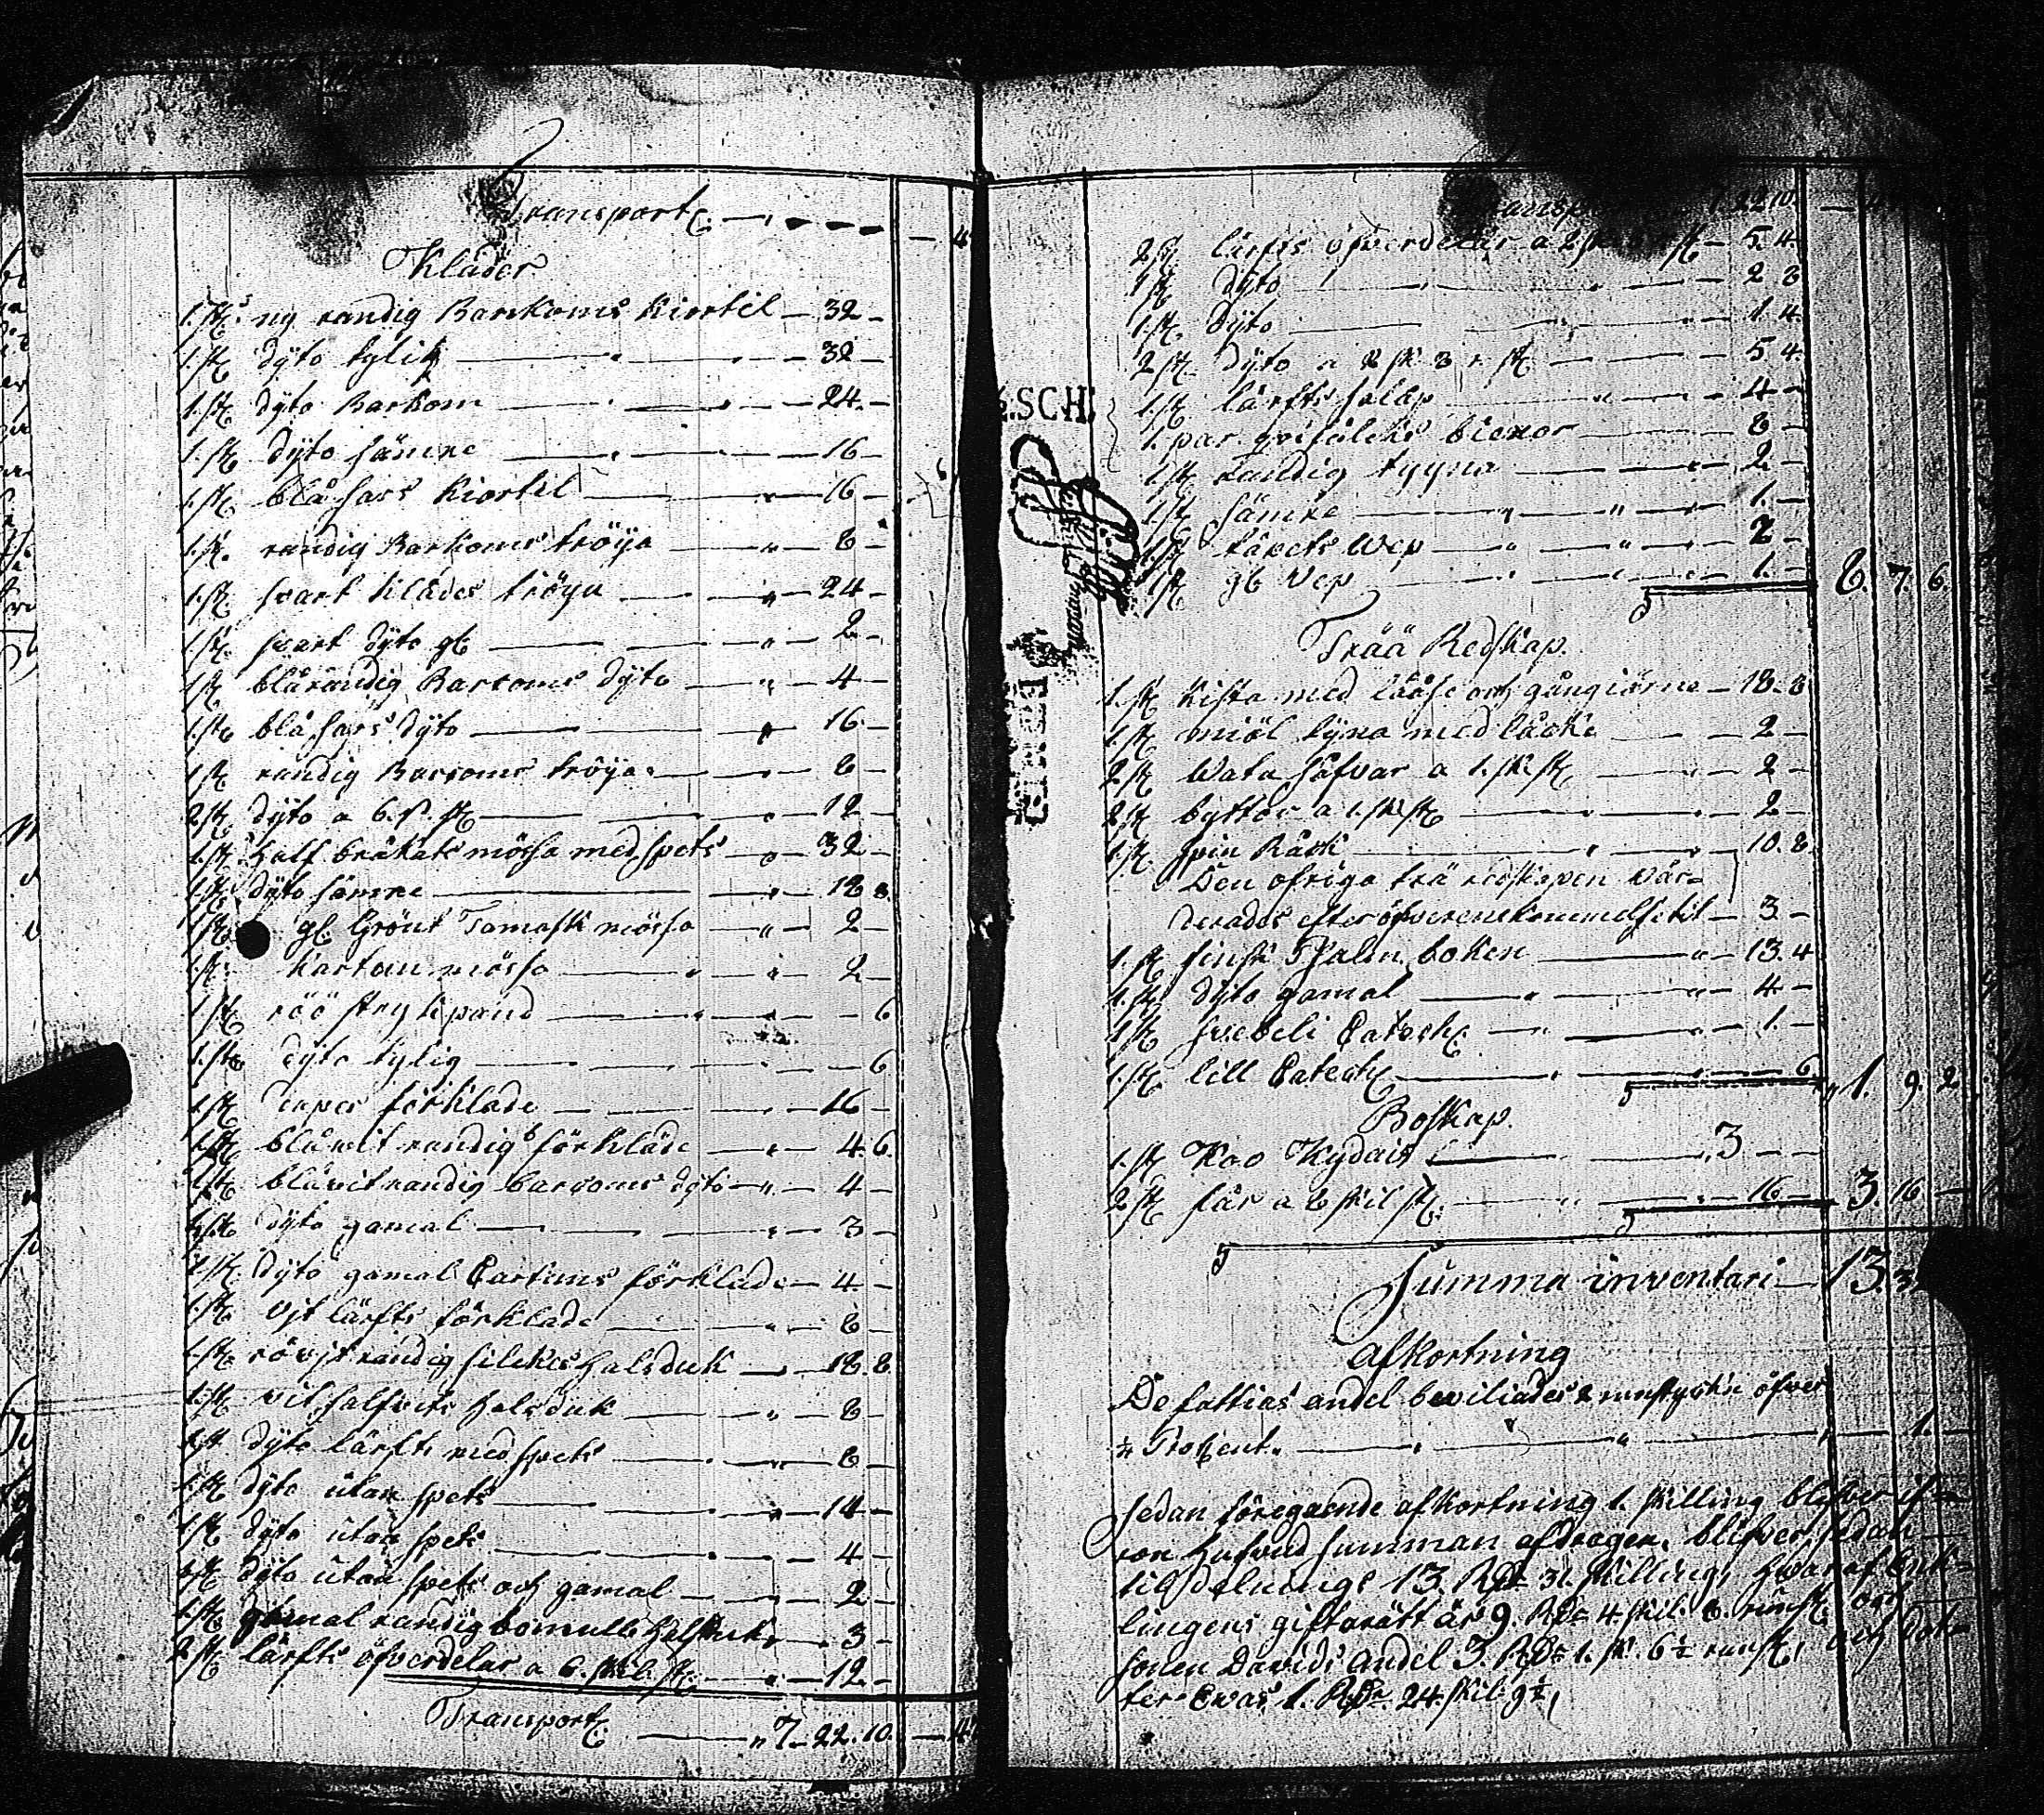 Transport — 4
Kläder
1. st. ny randig Barkoms Kiortil — 32 —
1. st. dÿto tylik — 32 —
1. st. dÿto Barkom — 24 —
1. st. dÿto sämre — 16 —
1. st. blå sars Kiortil — 16 —
1. st. randig Barkoms tröÿa — 8 —
1. st. svart klädes tröÿa — 24 —
1. st. svart dÿto gl — 2 —
1 st. blårandig Barcoms dÿto — 4 —
1. st. blå sars dÿto — 16 —
1 st. randig Barcoms tröÿa — 8 —
2 st. dÿto a 6. s. st. — 12 —
1. st. half bråkats mössa med spets — 32 —
1. st. dÿto sämre — 18 8.
1 st. gl. Grönt Tamask mössa — 2 —
1. st. kartun mössa — 2 —
1. st. röö strykpand — 6
1. st. dÿto tylig — 6
1. st. förklade — 16 —
1. st. blåwit randig förkläde — 4. 6
1. st. blåvit randig barcoms dÿto — 4 —
1. st. dÿto gamal — 3 —
1. st. dÿto gamal Cartuns förklade — 4 —
1. st. vit lärfts förklade — 8 —
1. st. rövit randig silckes halsduk — 18. 8
1. st. vit halsduk — 8 —
1. st. dÿto lärfts med spets — 8 —
1. st. dÿto utan spets — 14 —
1. st. dÿto utan spets — 4 —
1. st. dÿto utan spets och gamal — 2 —
1. st. gamal randig bomulls halsduk — 3 —
2 st. lärfts öfverdelar a 6. skil. st. — 12 —
Transport — 7 — 22. 10. — 4
7. 22 10.
2 st. lärfts öfverdelar a 2 — 5. 4.
1 st. dÿto — 2 8
1. st. dÿto — 1. 4.
2 st. dÿto a 2 sk 8 r. st. — 5 4.
1. st. lärfts — 4 —
1. par — 8 —
1 st. randig — 2 —
1. st. sämre — 1. —
1 st. Wep — 2 —
1 st. gl Vep — 1. — 8. 7. 6
Trää Redskap.
1. st. Kista med lååse och gångiärne — 18. 8
1. st. miöl tÿna med låcke — 2 —
2 st. Watu a 1. sk. st. — 2 —
2 st. byttor a 1. sk st. — 2 —
1 st. spin Råck — 10. 8.
Den öfriga trä redskapen vär=
derades efter öfverenskommelse til — 3 —
1. st. finsk Psalm boken — 13. 4
1. st. dÿto gamal — 4 —
1 st. svebeli Catech. — 1. —
1. st. lill Catech. — 6 1. 9. 2
Boskap.
1. st. Koo Kydais — 3 — —
2 st. får a 8 skil st. — 16 — 3. 16 —
Summa inventari — 13. 3
afkortning
De fattias andel beviliades runstycke öfver
¼ Procent. — 1. —
Sedan föregående afkortning 1. skilling blifver if=
ron hufvud summan afdragen, blifver sedan
til delnings 13. Rdr 31. skilling, hwaraf Enk=
lingens giftorätt är 9. Rdr 4 skil. 8. runst. och
sonen Davids andel 3. Rdr 1. sk. 6½ runst. och dot=
ter Evas, 1. Rdr 24. skil. 9½,